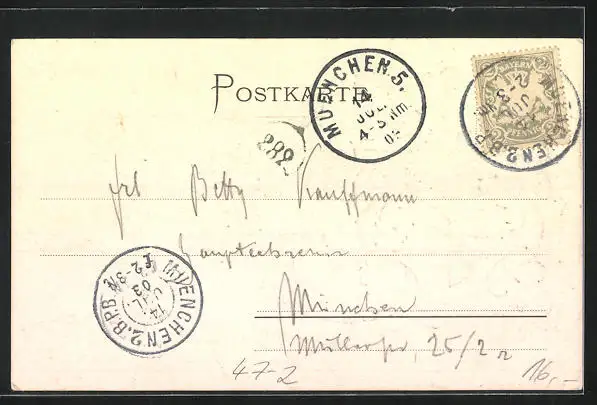 POSTKARTE
MUENCHEN.5.
14
JUL
4-5 Nm.
03
BAYERN
MUENCHEN 2.B.P.B.
2-3
JUL
Frl Betty Kauffmann
München
25/2 r
MUENCHEN 2.B.PB.
14
JUL
03
2-3N
47-2
16,-